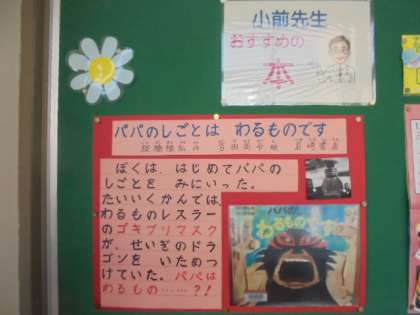 小前先生
おすすめの
本
パパのしごとは わるものです
板橋雅弘 作 吉田尚令 絵 岩崎書店
ぼくは、はじめてパパの
しごとを みにいった。
たいいくかんでは、
わるものレスラー
のゴキブリマスク
が、せいぎのドラ
ゴンを いためつ
けていた。パパは
わるもの……?!
パパの
わるものです